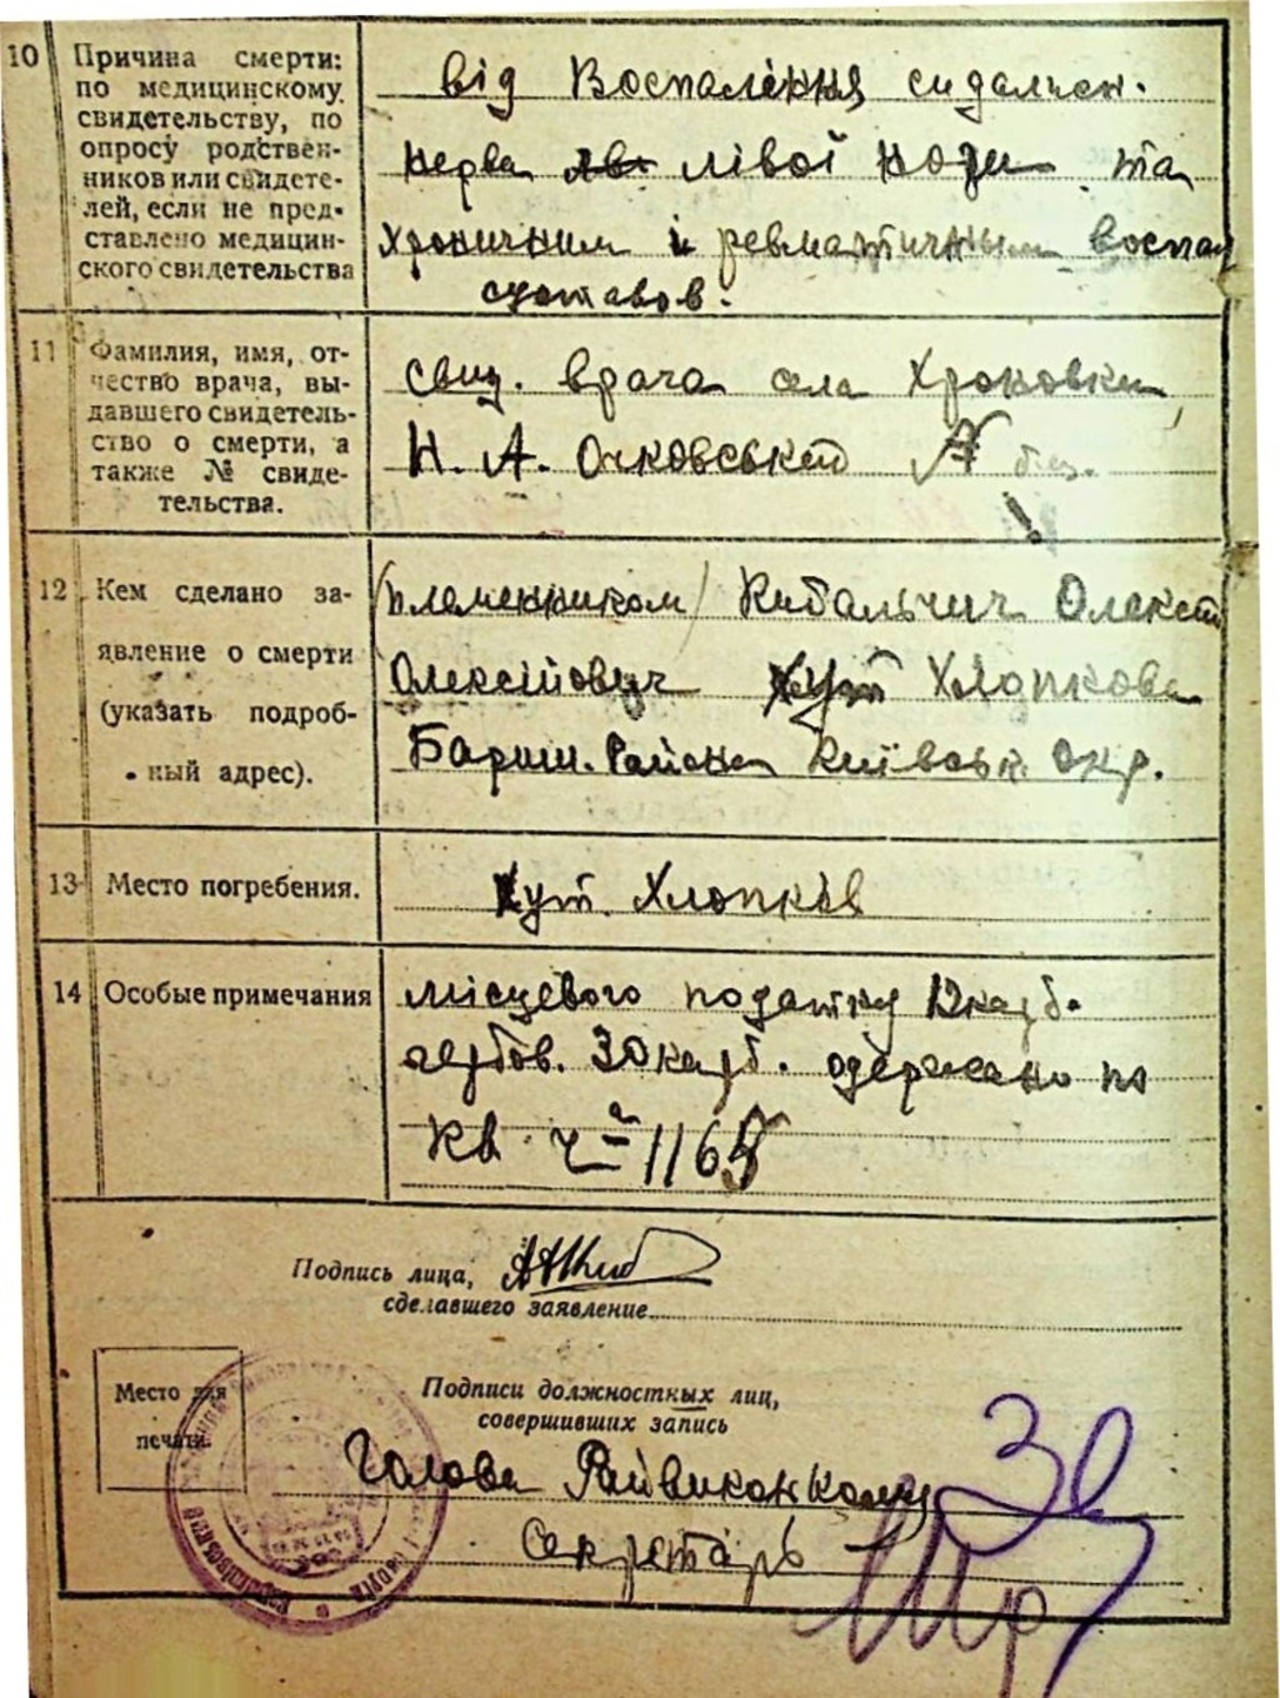 10 Причина смерти:
по медицинскому
свидетельству, по
опросу родствен-
ников или свидете-
лей, если не пред-
ставлено медицин-
ского свидетельства
від Воспалення сидалищн.
нерва лівої ноги та
хроничним и ревматичным воспал
суставов.
11 Фамилия, имя, от-
чество врача, вы-
давшего свидетель-
ство о смерти, а
также № свиде-
тельства.
свид. врача села
Н. А. Очковський
12 Кем сделано за-
явление о смерти
(указать подроб-
ный адрес).
(племенником) Кибальчич Олексій
Олексійович Хут Хлопкова
Бариш. Района Київськ. Окр.
13 Место погребения.
Хут. Хлопків
14 Особые примечания
місцевого податку 12 карб.
гербов. 30 карб. одержано по
кв. ч 1165
Подпись лица,
сделавшего заявление
Место для
печати.
Подписи должностных лиц,
совершивших запись
Голова Райвиконкому
Секретарь